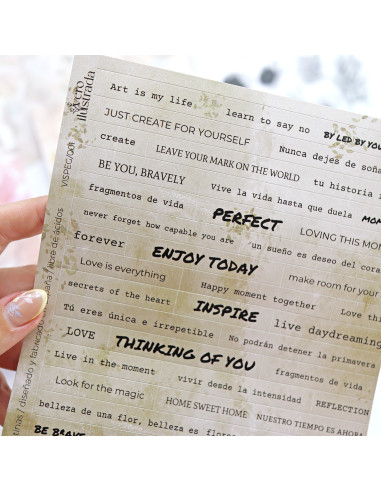 Vero
ilustrada
VISPEG/001
Art is my life
learn to say no
BY LED BY YOU
JUST CREATE FOR YOURSELF
Nunca dejes de soña
create
LEAVE YOUR MARK ON THE WORLD
tu historia
BE YOU, BRAVELY
Vive la vida hasta que duela
fragmentos de vida
PERFECT
LOVING THIS MOM
never forget how capable you are
un sueño es deseo del coraz
forever
ENJOY TODAY
make room for your
Love is everything
Happy moment together
Love this
secrets of the heart
INSPIRE
live daydreaming
Tú eres única e irrepetible
No podrán detener la primavera
LOVE
THINKING OF YOU
fragmentos de vida
Live in the moment
vivir desde la intensidad
REFLECTION
Look for the magic
HOME SWEET HOME
NUESTRO TIEMPO ES AHORA
belleza de una flor, belleza es flores
BE BRAVE
tinas / diseñado y fabricado
libre de ácidos